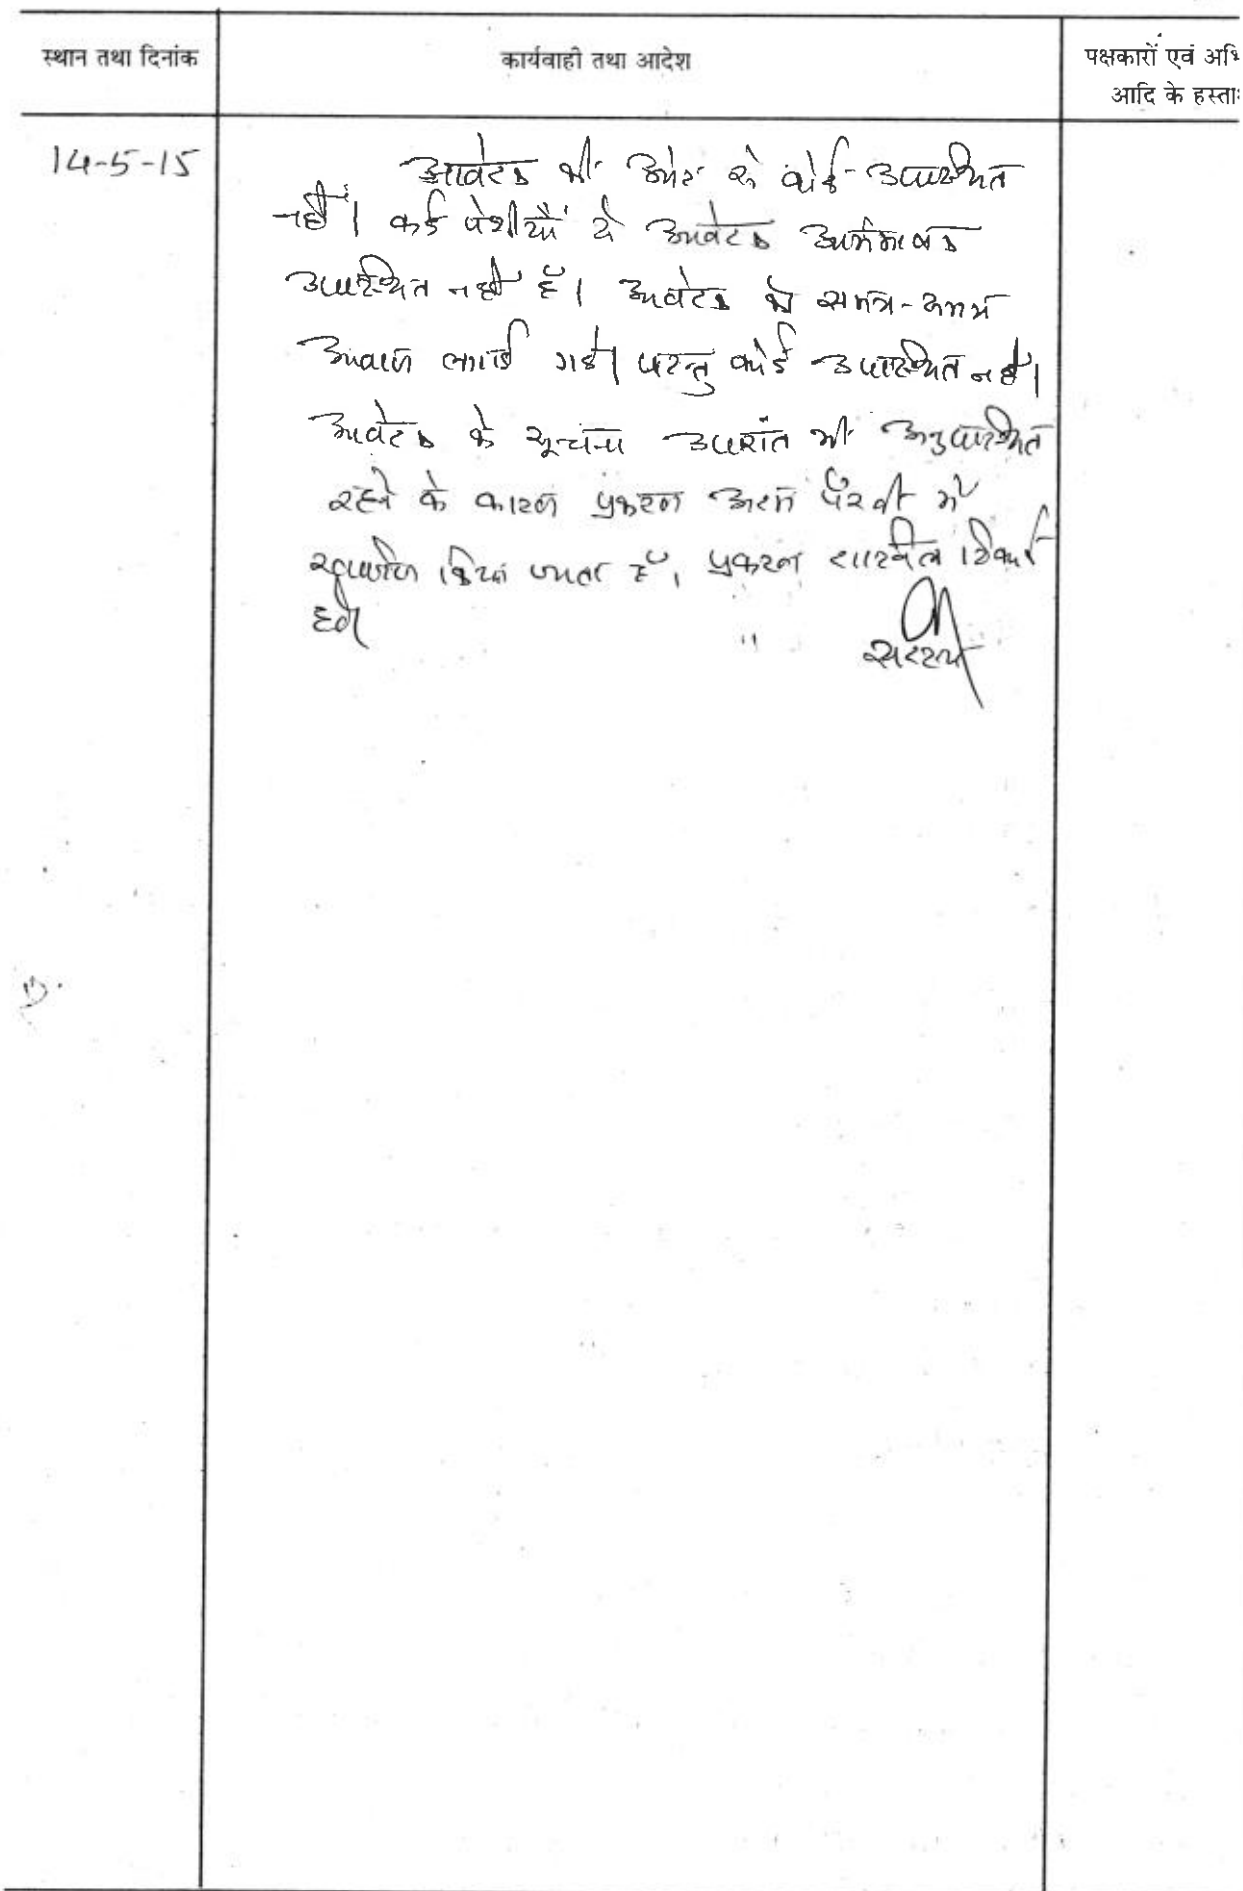 स्थान तथा दिनांक
कार्यवाही तथा आदेश
पक्षकारों एवं अभि
आदि के हस्ता
14-5-15
आवेदक की ओर से कोई उपस्थित
नहीं। कई पेशीयों से आवेदक अभिभाषक
उपस्थित नहीं है। आवेदक को समय-समय
आवाज लगाई गई। परन्तु कोई उपस्थित नहीं।
आवेदक के सूचना उपरांत भी अनुपस्थित
रहने के कारण प्रकरण अदम पैरवी में
खारिज किया जाता है। प्रकरण दाखिल रिकार्ड
हो।
सदस्य